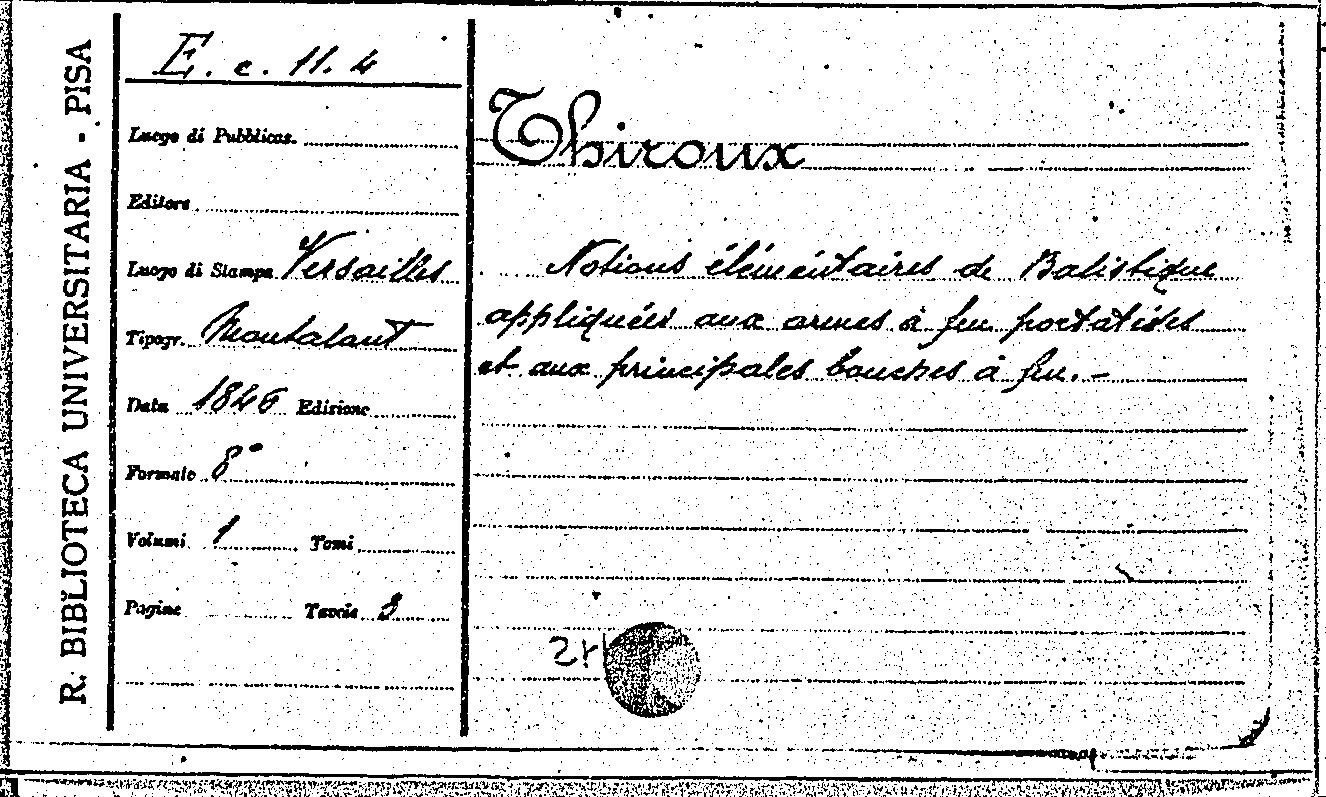 R. BIBLIOTECA UNIVERSITARIA - PISA
E. c. 11. 4
Luogo di Pubblicaz.
Editore
Luogo di Stampa Versailles
Tipogr. Montalant
Data 1846 Edizione
Formato 8°
Volumi 1 Tomi
Pagine Tavole 3
Thiroux
Notions élémentaires de Balistique
appliquées aux armes à feu portatives
et aux principales bouches à feu. -